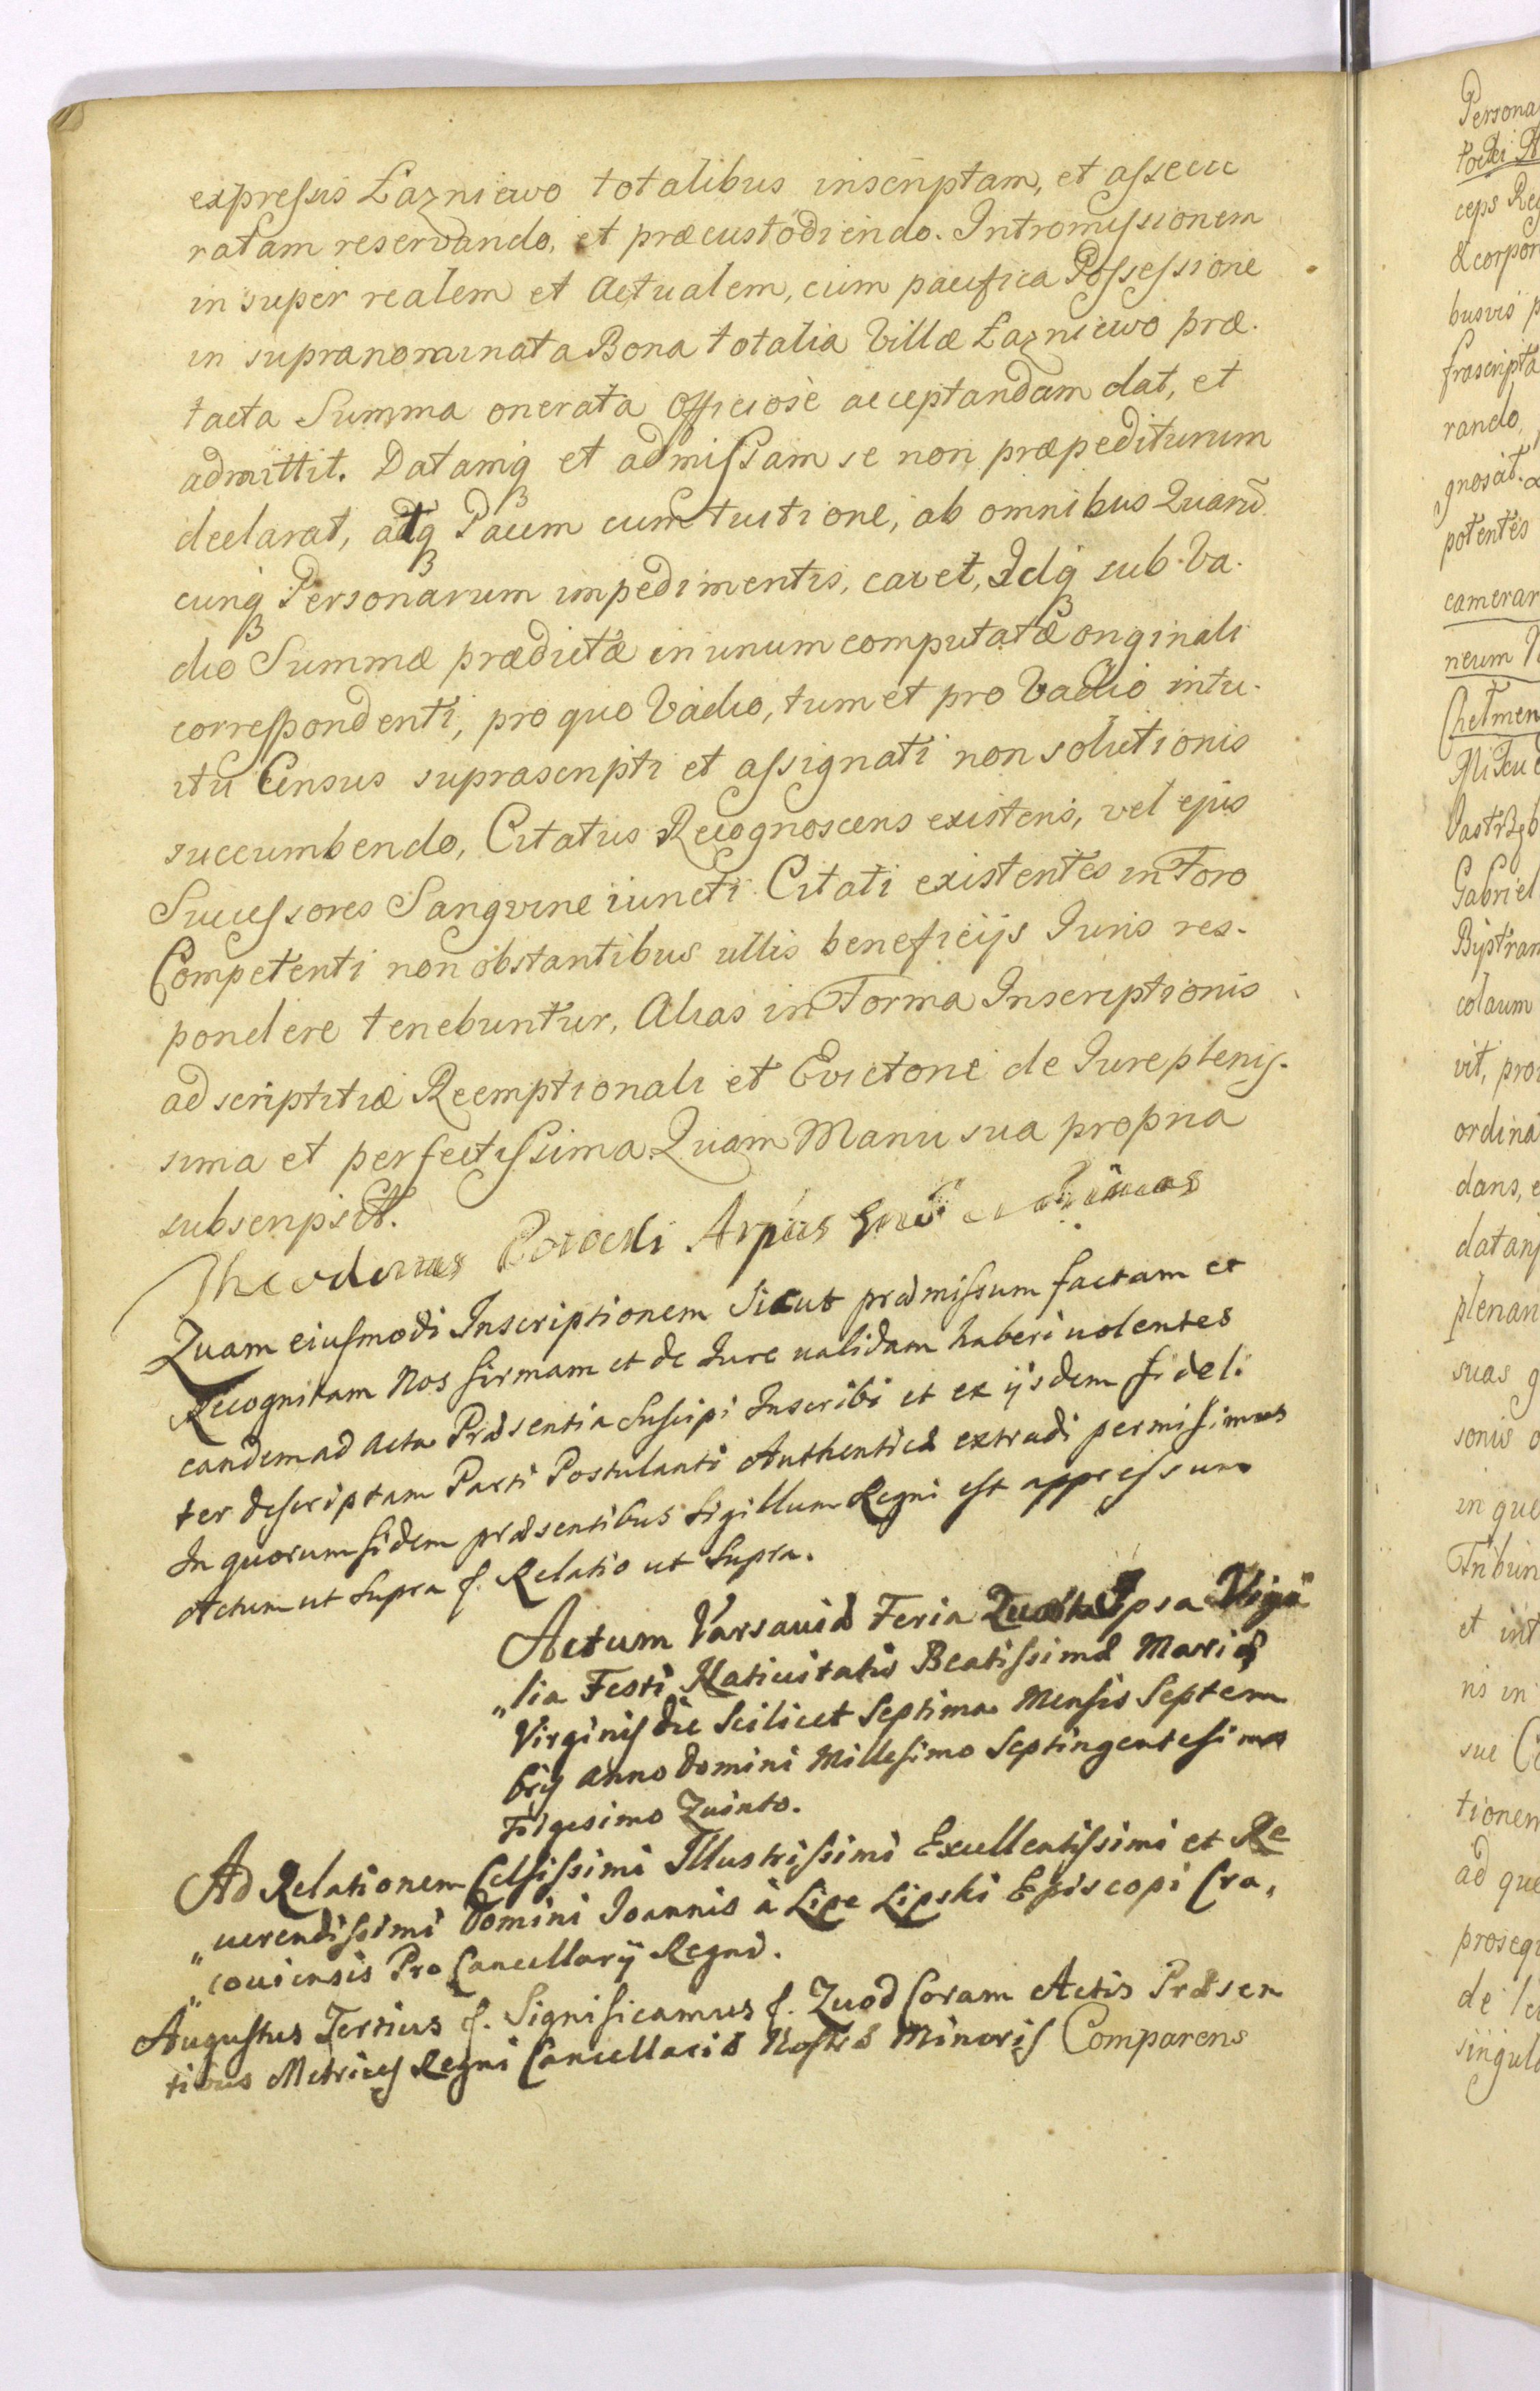 expressis Łazniewo totalibus inscriptam, et assecu
ratam reservando, et præcustodiendo. Intromissionem
in super realem et Actualem, cum pacifica Possessione
in supranominata Bona totalia Villæ Łazniewo præ.
tacta Summa onerata Officiosè acceptandam dat, et
admittit. Datamq et admissam se non præpediturum
declarat, adq Pacem cum tuitione, ab omnibus Quarū
cunq Personarum impedimentis, cavet, Idq sub Va.
dio Summæ prædictæ in unum computatæ originali
correspondenti, pro quo Vadio, tum et pro Vadio intu.
itu Census suprascripti et assignati non solutionis
succumbendo, Citatus Recognoscens existens, vel ejus
Successores Sangvine iuncti Citati existentes in Foro
Competenti non obstantibus ullis beneficijs Juris res.
pondere tenebuntur, Alias in Forma Inscriptionis
adscriptitiæ Reemptionali et Evictoriæ de Jure plenis.
sima et perfectissima. Quam Manu sua propria
subscripsit.
Theodorus Potocki Arpus
Quam eiusmodi Inscriptionem Sicut præmissum factam et
Recognitam Nos firmam et de Jure validam haberi uolentes
eandem ad Acta Præsentia Suscipi Inscribi et ex ijsdem fideli
ter descriptam Parti Postulanti Authenticè extradi permisimus
In quorum fidem præsentibus Sigillum Regni est appressum
Actum ut Supra f. Relatio ut Supra.
Actum Varsaviæ Feria Quarta Ipsa Vigi
"lia Festi Natiuitatis Beatissimæ Mariæ
Virginis die Scilicet Septima Mensis Septem
bris Anno Domini Millesimo Septingentesimo
Trigesimo Quinto.
Ad Relationem Celsissimi Illustrissimi Excellentissimi et Re
"uerendissimi Domini Joannis à Lipe Lipski Episcopi Cra,
"couiensis Pro Cancellarij Regni.
Augustus Tertius f. Significamus f. Quod Coram Actis Præsen
tibus Metrices Regni Cancellariæ Nostræ Minoris Comparens
Persona
ceps Reg
& corpor
busvis p
frascripta
rando,
gnosat.
potentes
camerar
neum
Chełmen
Gabriel
Bystram
colaum
vit, pro
ordina
dans, e
datam
plenam
suas q
sonis o
in que
Tribun
et int
ns in
sue
tionem
ad que
proseq
de
singula